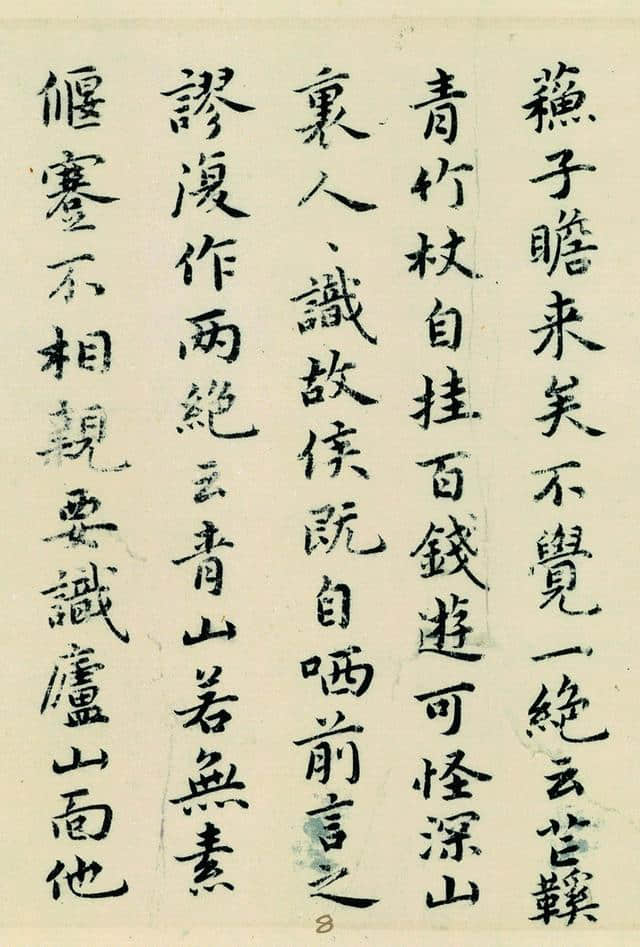 蘓子瞻来矣不覺一絶云芒鞵
青竹杖自挂百錢遊可怪深山
裏人、識故侯既自哂前言之
謬復作两絶云青山若無素
偃蹇不相親要識廬山面他
8